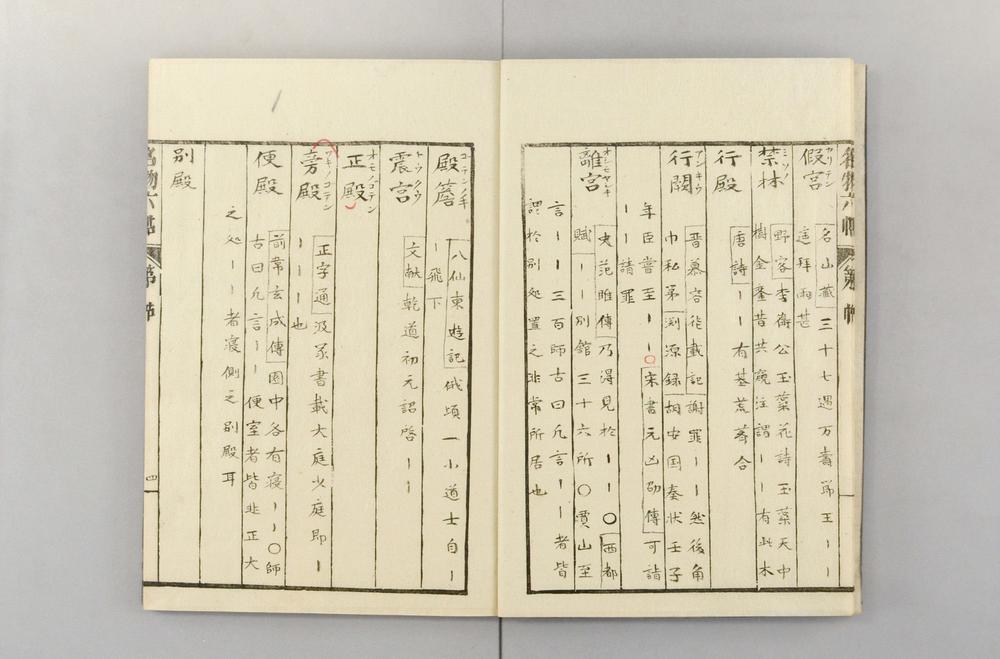 假宮 カリテン
名山藏三十七遇万壽節王ーー
這拜兩甚
禁林 ミソノ
野客李衛公玉蘂花詩玉蘂天中
樹金鑾昔共窺注謂ーー有此木
行殿
唐詩ーー有基荒薺合
行闕 アンキウ
晋慕容從載記謝罪ーー然後角
巾私第渕源録胡安国奏状壬子
年臣嘗至ーー〇宋書元凶劭傳可詣
ーー請罪
離宮
史范雎傳乃得見於ーー〇西都
賦ーー別館三十六所〇賈山至
言ーー三百師古曰凡言ーー者皆
謂於別処置之非常所居也
殿簷 コテンノノキ
八仙東遊記俄頃一小道士自ー
ー飛下
震宮 トウクウ
文献乾道初元詔啓ーー
正殿 オモノゴテン
旁殿
正字通汲冢書載大庭少庭即ー
ーーー也
便殿
前韋玄成傳園中各有寢ーー〇師
古曰凡言ーー便室者皆非正大
之処ーー者寢側之別殿耳
別殿
第
四